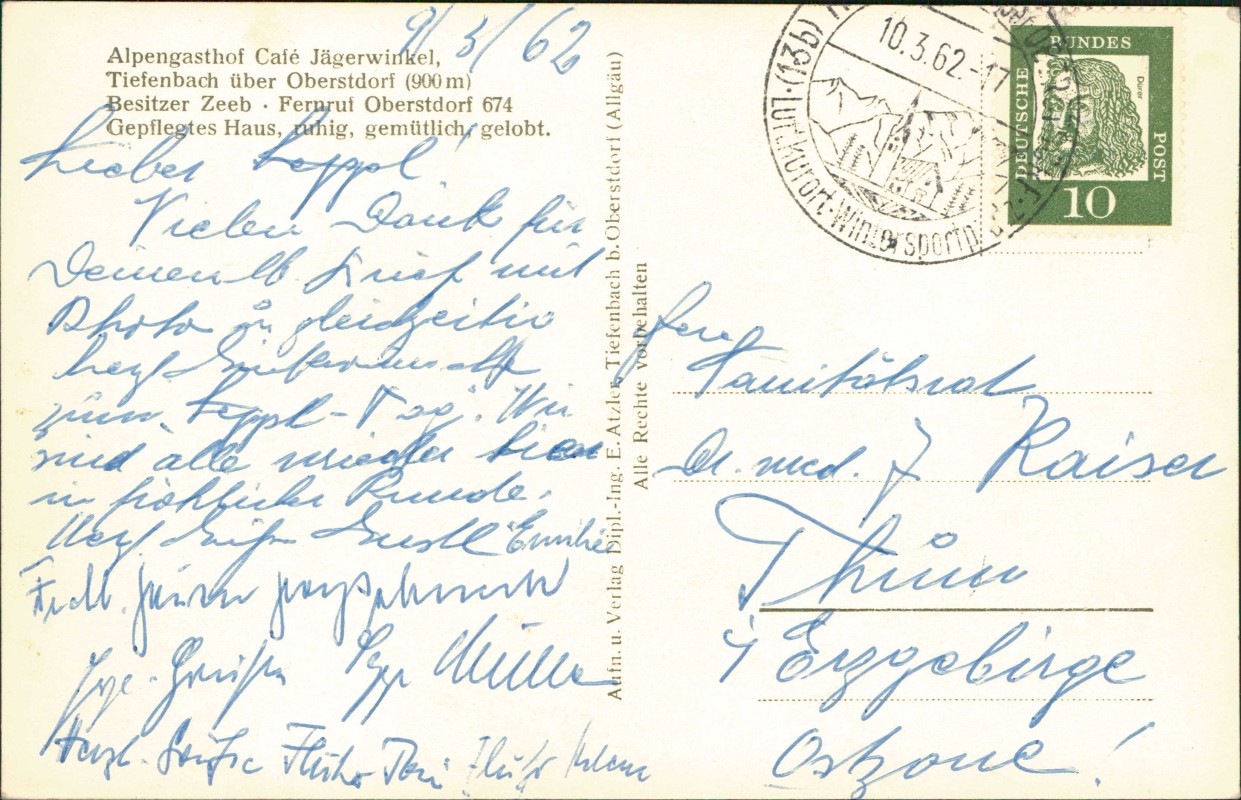 9/3/62
Alpengasthof Café Jägerwinkel,
Tiefenbach über Oberstdorf (900 m)
Besitzer Zeeb · Fernruf Oberstdorf 674
Gepflegtes Haus, ruhig, gemütlich, gelobt.
Lieber Seppl!
Vielen Dank für
Deinen lb. Brief mit
Photo u. gleichzeitig
herzl.
zum Seppl-Tag. Wir
sind alle wieder hier
in fröhlicher Runde.
Herzl. Grüße Gustl Emilie
Sepp Müller
Herzl. Grüße
Aufn. u. Verlag Dipl.-Ing. E. Atzler, Tiefenbach b. Oberstdorf (Allgäu)
Alle Rechte vorbehalten
(13b)
10.3.62.-17
Luftkurort·Wintersportplatz
DEUTSCHE BUNDES POST
Dürer
10
Herrn
Sanitätsrat
Dr. med. J Kaiser
Thum
i Erzgebirge
Ostzone!